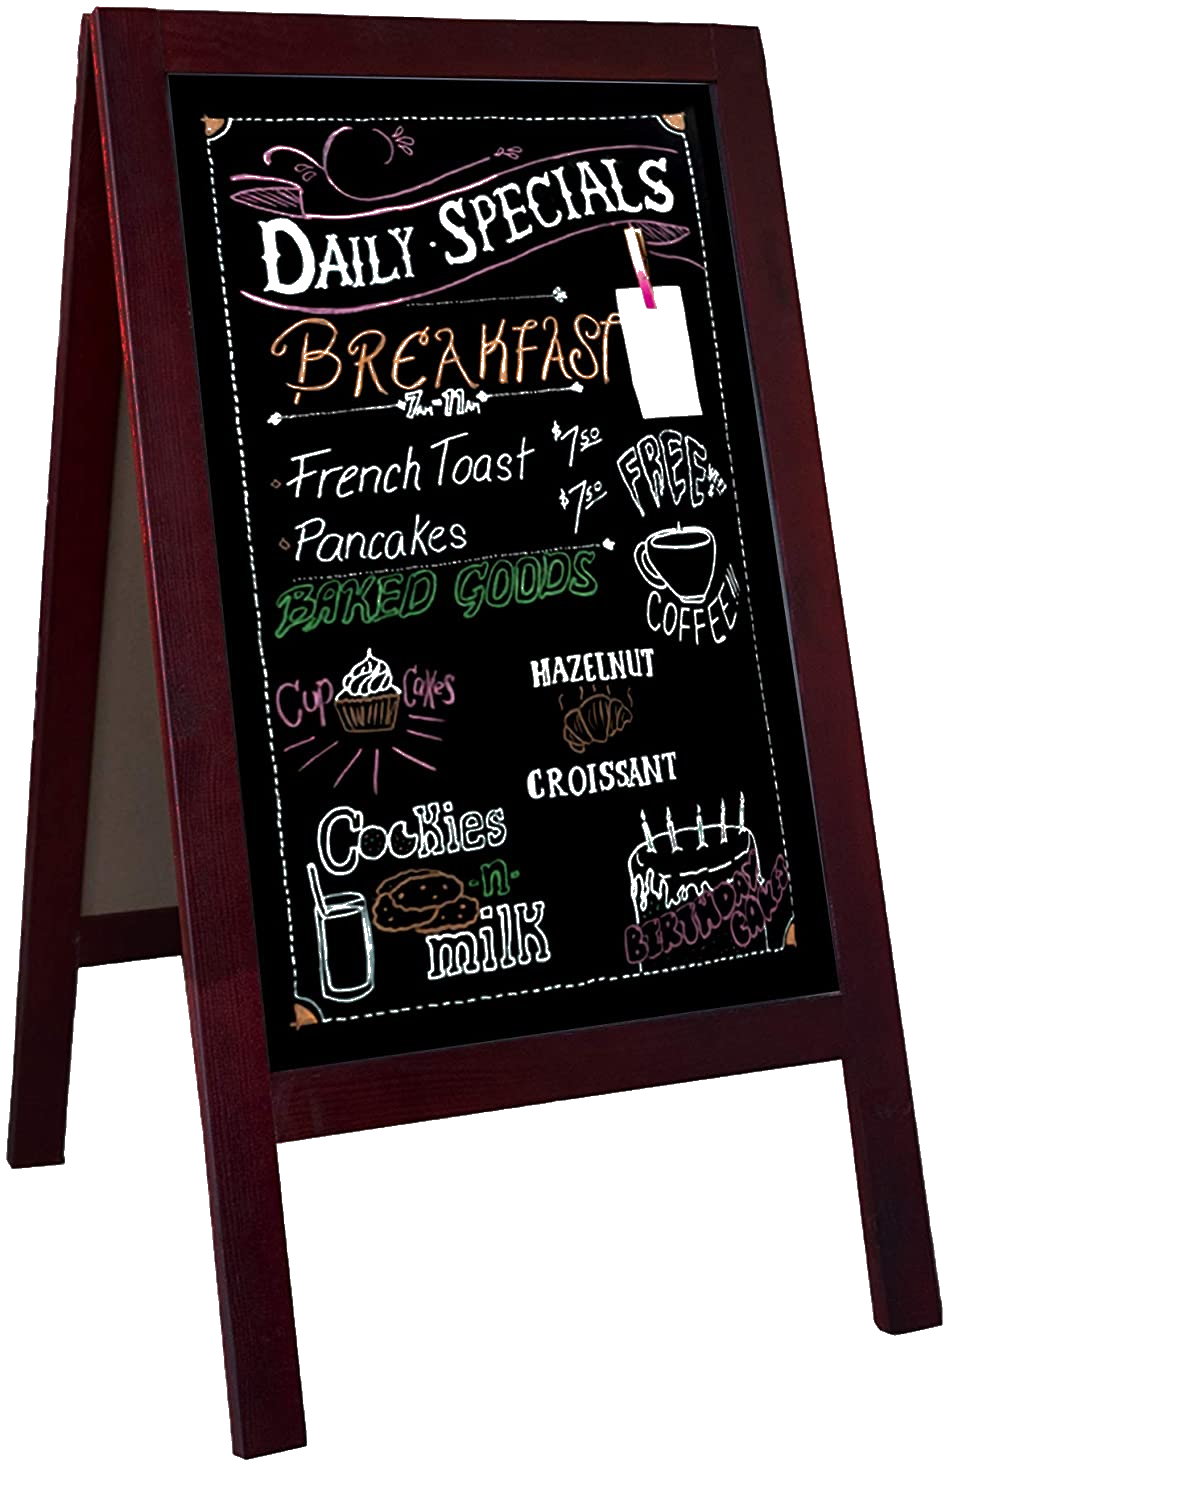 DAILY · SPECIALS
BREAKFAST
7AM-11AM
French Toast $7.50
Pancakes $7.50
FREE
COFFEE!!!
BAKED GOODS
Cup Cakes
HAZELNUT
CROISSANT
Cookies
-n-
milk
BIRTHDAY
CAKES